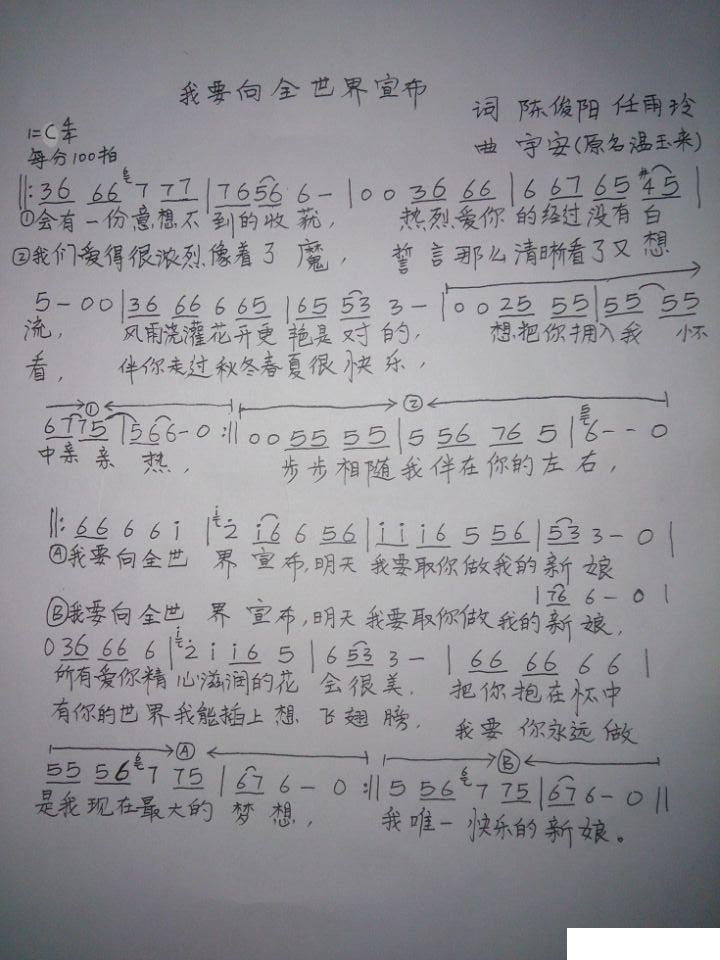 我要向全世界宣布
词 陈俊阳 任雨玲
1=C 4/4
每分100拍
曲 宇安(原名温玉来)
||: 36 66 6 7 77 | 7656 6 - | 0 0 36 66 | 6 67 65 #45 |
①会有一份意想不到的收获, 热烈爱你的经过没有白
②我们爱得很浓烈像着了魔, 誓言那么清晰看了又想
5 - 0 0 | 36 66 6 65 | 65 53 3 - | 0 0 25 55 | 55 55
流, 风雨浇灌花开更艳是对的, 想把你拥入我 怀
看, 伴你走过秋冬春夏很快乐,
① ②
67 75 | 566 - 0 :|| 0 0 55 55 | 5 56 76 5 | 5 6 - - 0
中亲亲热, 步步相随我伴在你的左右,
||: 66 6 6 i | i 2 i6 6 56 | i i i6 5 56 | 53 3 - 0 |
Ⓐ我要向全世界宣布,明天我要取你做我的新娘
| 76 6 - 0 |
Ⓑ我要向全世界宣布,明天我要取你做我的新娘,
0 36 66 6 | i 2 i i6 5 | 6 53 3 - | 66 66 6 6 |
所有爱你精心滋润的花会很美. 把你抱在怀中
有你的世界我能插上想飞翅膀. 我要你永远做
Ⓐ Ⓑ
55 56 6 7 75 | 67 6 - 0 :|| 5 56 6 7 75 | 67 6 - 0 ||
是我现在最大的梦想, 我唯一快乐的新娘。